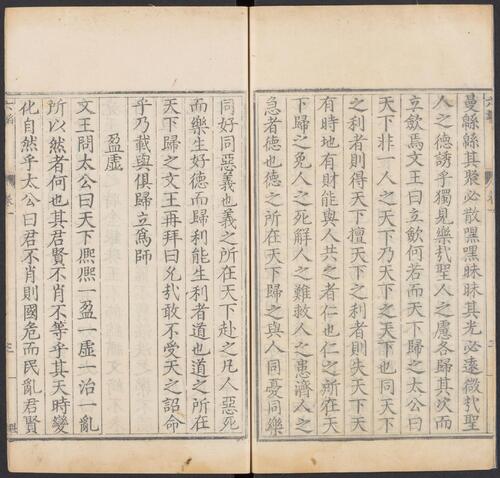 曼緜緜其聚必散嘿嘿昧昧其光必遠微㢤聖
人之德誘乎獨見樂㢤聖人之慮各歸其次而
立斂焉文王曰立斂何若而天下歸之太公曰
天下非一人之天下乃天下之天下也同天下
之利者則得天下擅天下之利者則失天下天
有時地有財能與人共之者仁也仁之所在天
下歸之免人之死解人之難救人之患濟人之
急者德也德之所在天下歸之與人同憂同樂
同好同惡義也義之所在天下赴之凡人惡死
而樂生好德而歸利能生利者道也道之所在
天下歸之文王再拜曰允㢤敢不受天之詔命
乎乃載與俱歸立爲師
盈虛
文王問太公曰天下熙熙一盈一虛一治一亂
所以然者何也其君賢不肖不等乎其天時變
化自然乎太公曰君不肖則國危而民亂君賢
卷一
三